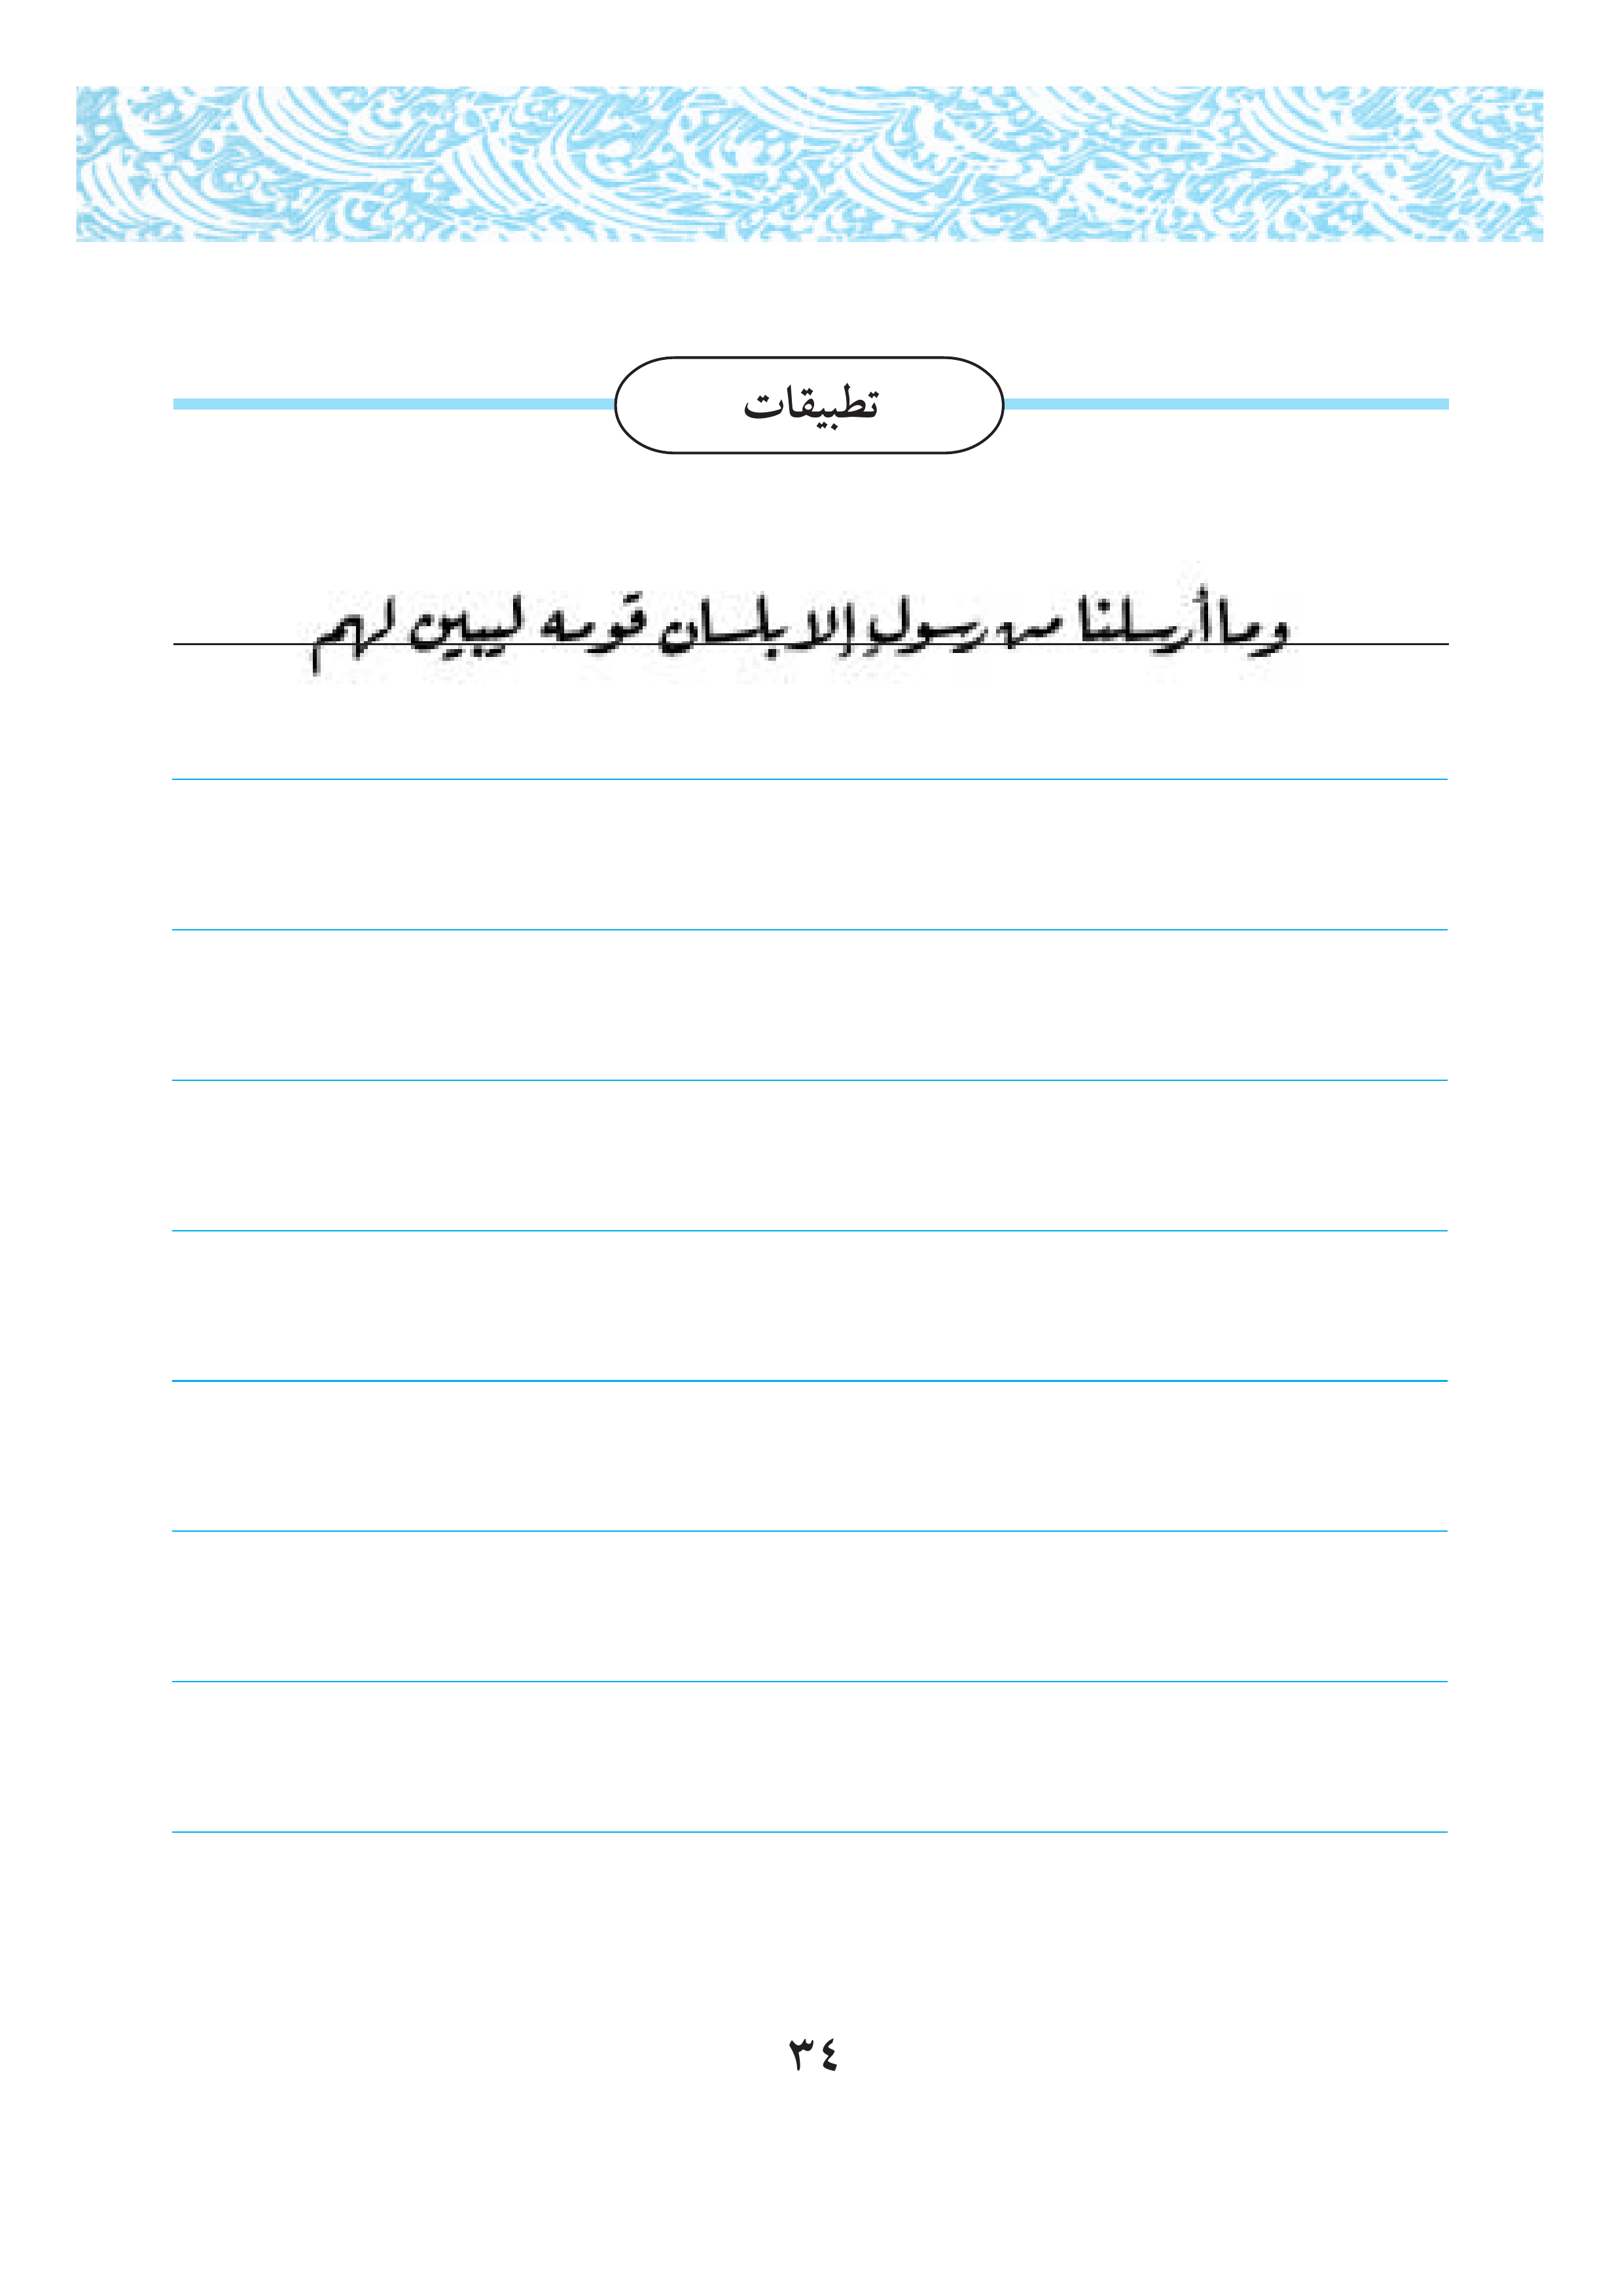 تطبيقات
وما أرسلنا من رسولٍ إلا بلسان قومه ليبين لهم
٣٤